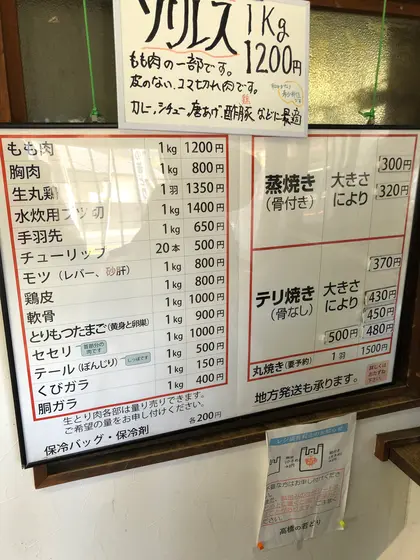 ソリレス 1Kg 1200円
もも肉の一部です。
皮のない、コマ切れ肉です。
カレー、シチュー、唐あげ、酢豚などに最適
もも肉 1kg 1200円
胸肉 1kg 800円
生丸鶏 1羽 1350円
水炊用ブツ切 1kg 1400円
手羽先 1kg 650円
チューリップ 20本 500円
モツ(レバー、砂肝) 1kg 800円
鶏皮 1kg 800円
軟骨 1kg 1000円
とりもつたまご(黄身と卵巣) 1kg 900円
セセリ 首部分の肉です 1kg 1000円
テール(ぼんじり) しっぽです 1kg 500円
くびガラ 1kg 150円
胴ガラ 1kg 400円
生とり肉各部は量り売りできます。
ご希望の量をお申し付けください。
保冷バッグ・保冷剤 各200円
蒸焼き(骨付き) 大きさにより 300円
320円
テリ焼き(骨なし) 大きさにより 370円
430円
450円
500円 480円
丸焼き(要予約) 1羽 1500円
地方発送も承ります。
高橋の若どり